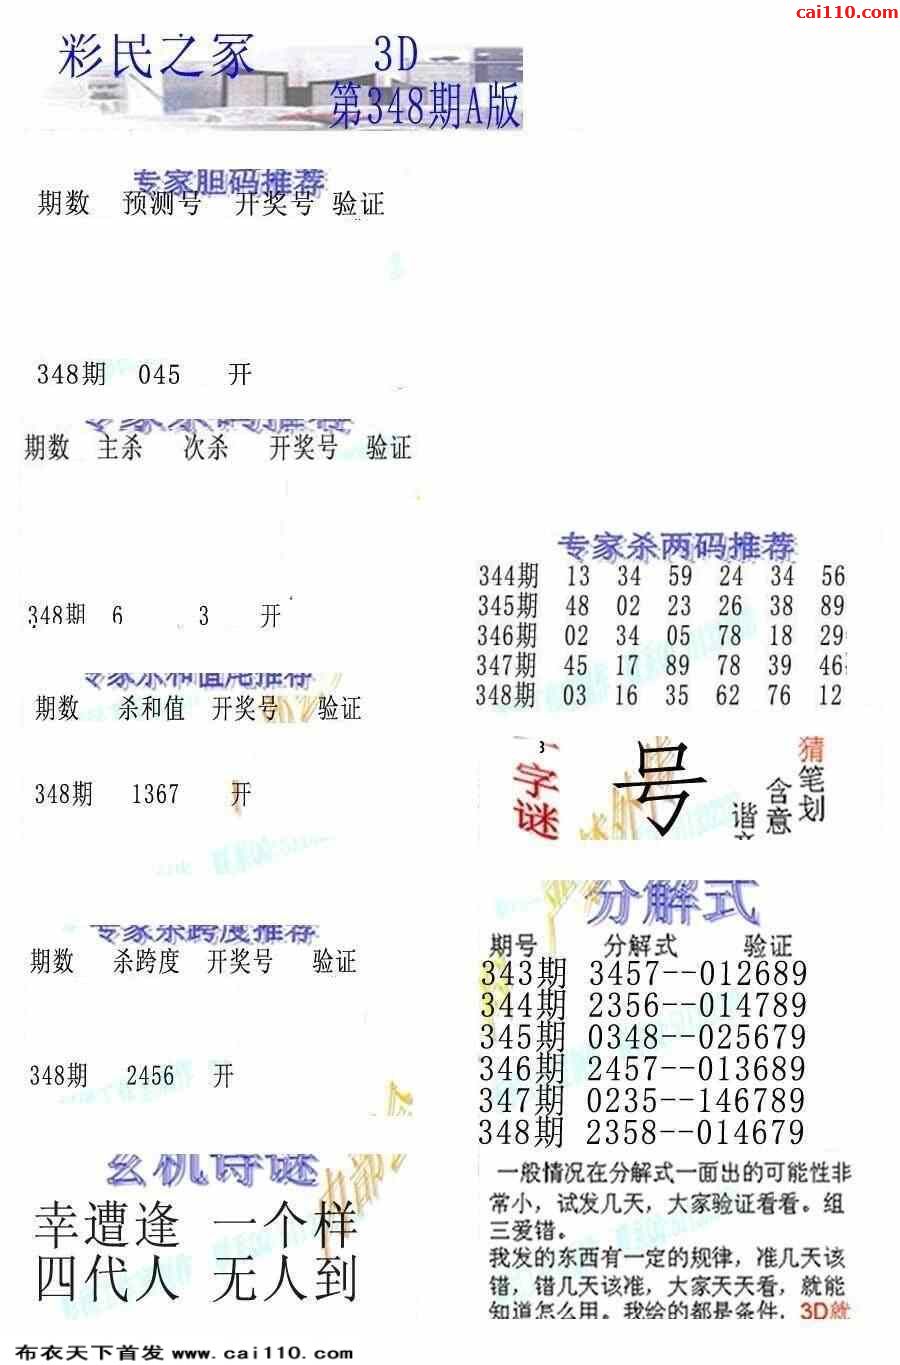 cai110.com
彩民之家 3D
第348期A版
专家胆码推荐
期数 预测号 开奖号 验证
348期 045 开
专家杀码推荐
期数 主杀 次杀 开奖号 验证
348期 6 3 开
专家杀和值尾推荐
期数 杀和值 开奖号 验证
348期 1367 开
专家杀跨度推荐
期数 杀跨度 开奖号 验证
348期 2456 开
玄机诗谜
幸遭逢 一个样
四代人 无人到
专家杀两码推荐
344期 13 34 59 24 34 56
345期 48 02 23 26 38 89
346期 02 34 05 78 18 29
347期 45 17 89 78 39 46
348期 03 16 35 62 76 12
字谜
号
猜笔划
含意
谐
分解式
期号 分解式 验证
343期 3457--012689
344期 2356--014789
345期 0348--025679
346期 2457--013689
347期 0235--146789
348期 2358--014679
一般情况在分解式一面出的可能性非
常小，试发几天，大家验证看看。组
三爱错。
我发的东西有一定的规律，准几天该
错，错几天该准，大家天天看，就能
知道怎么用。我给的都是条件，3D就
布衣天下首发 www.cai110.com